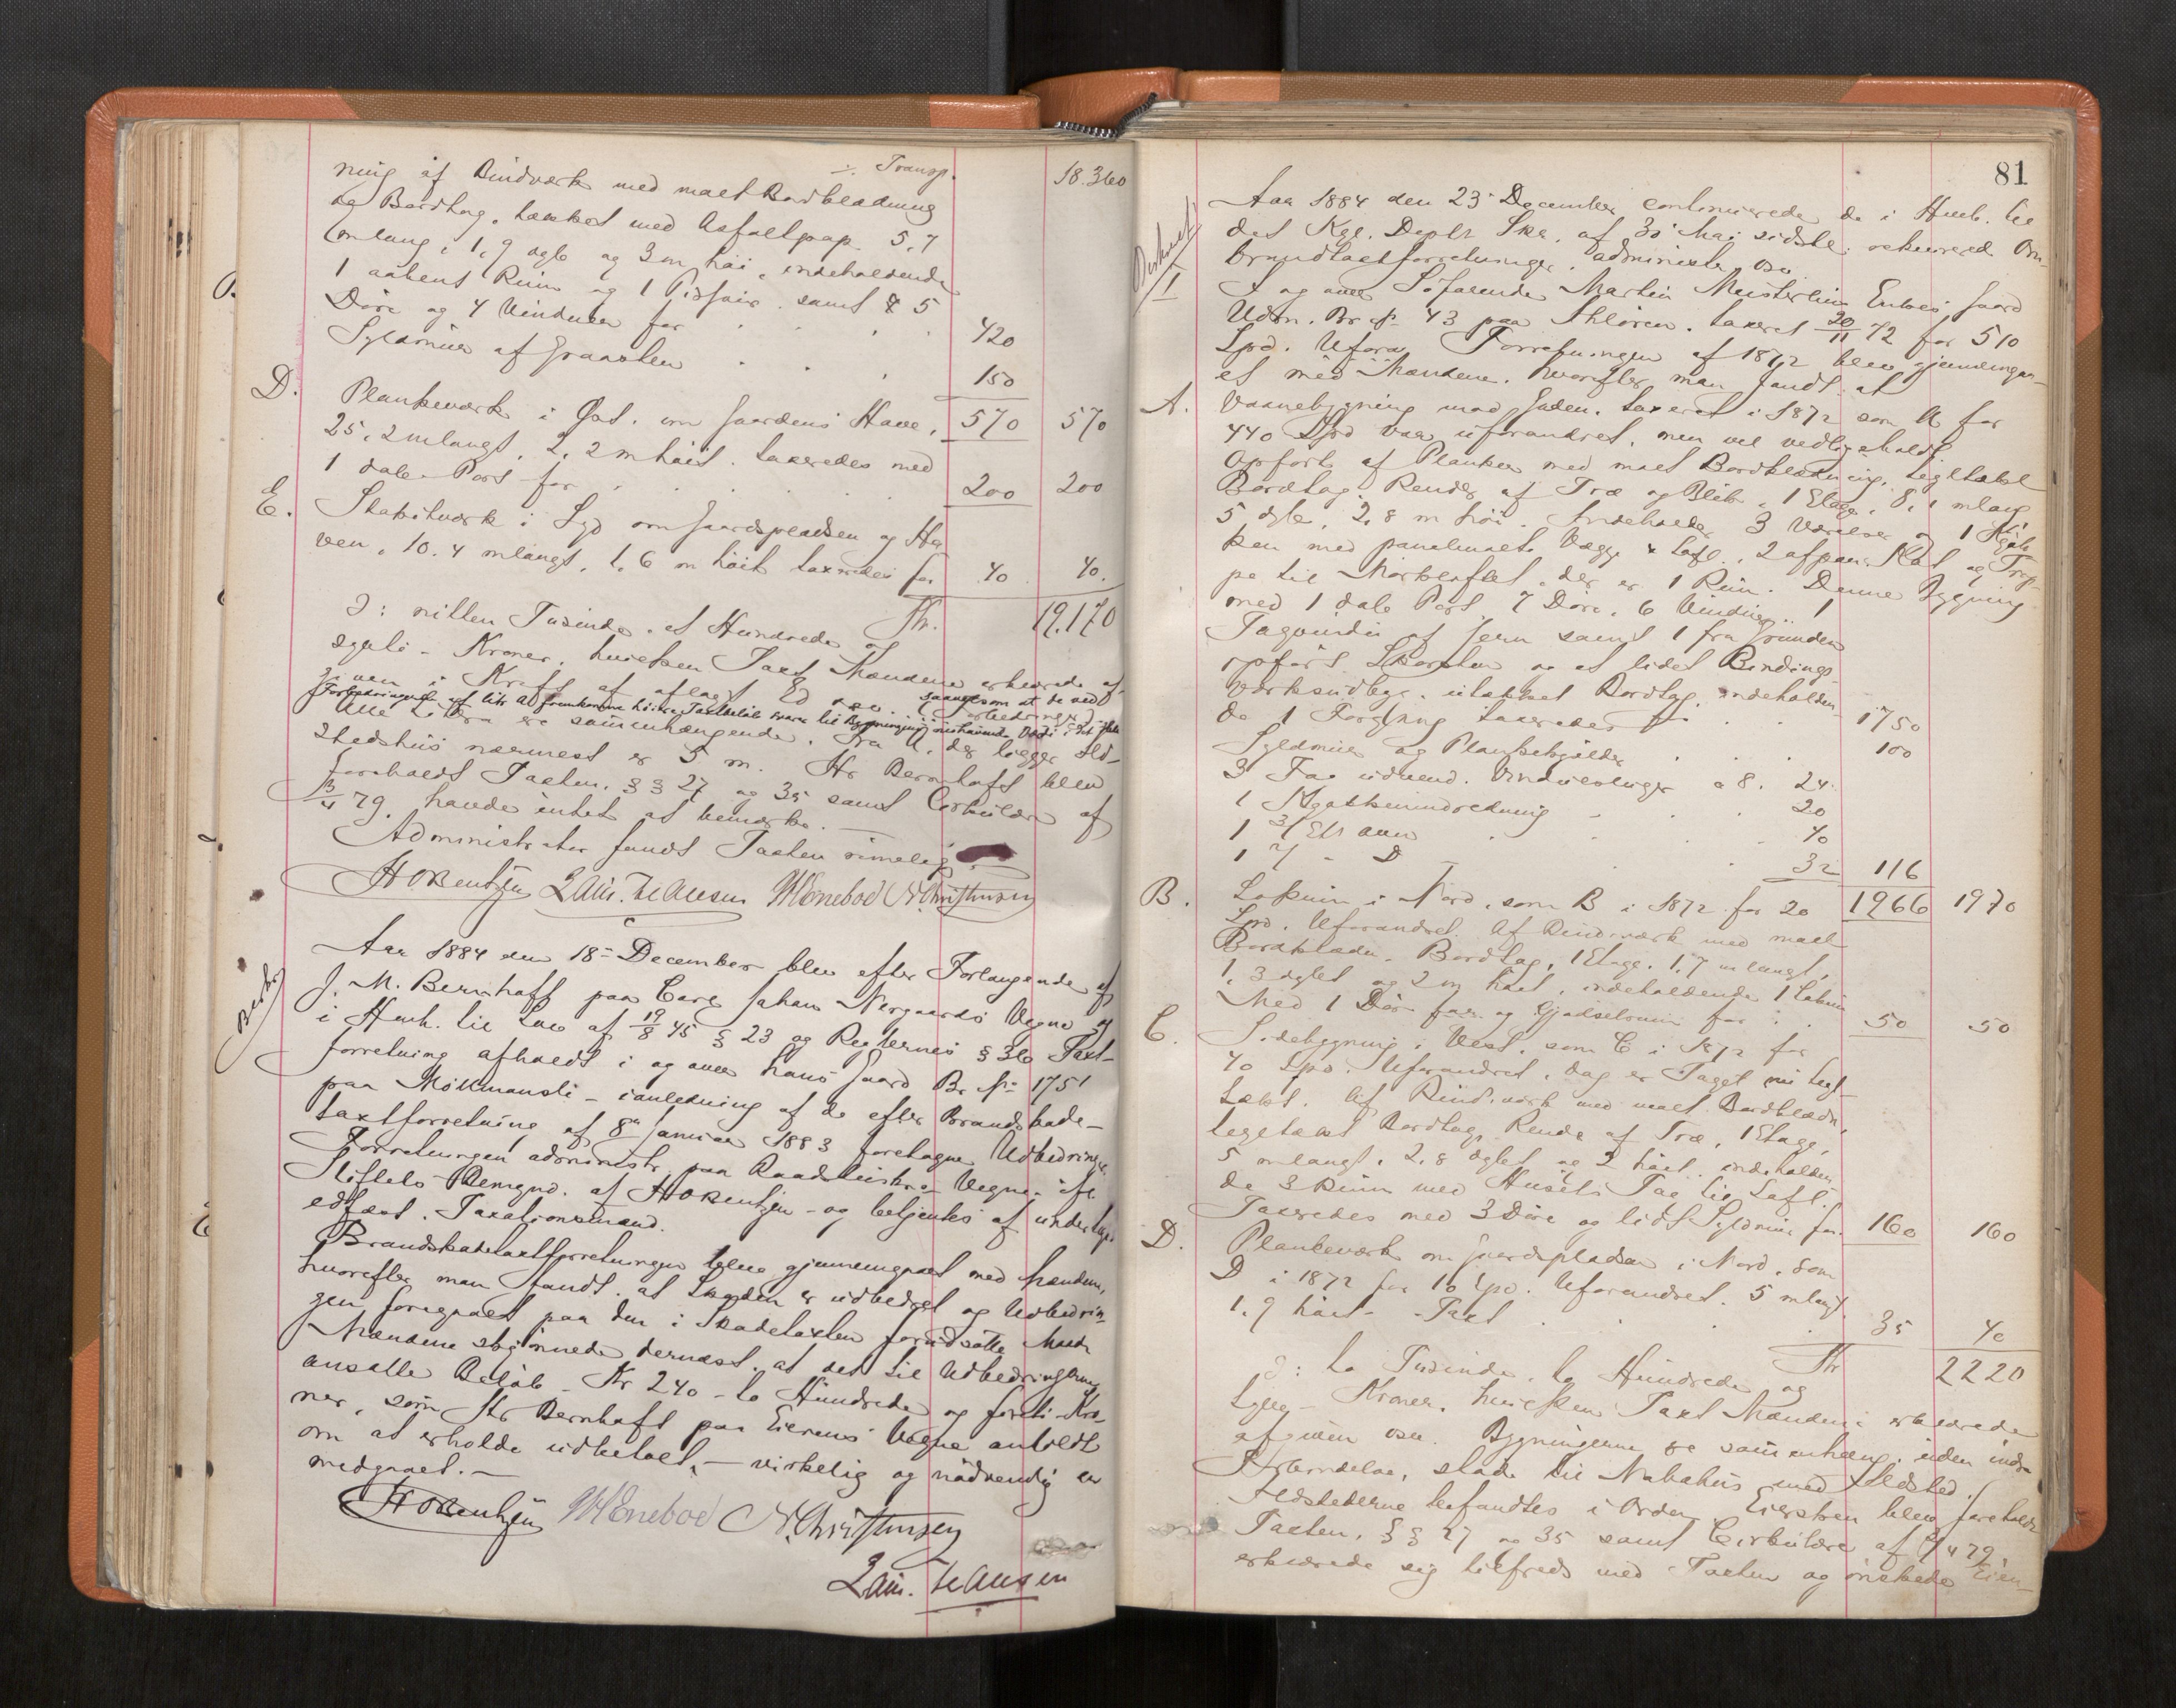 ÷ Transp. 18.360
ning af Bindværk med malt Bordklædning
og Bordtag, tækket med Asfaltpap 5,7
m lang, 1,9 dyb og 3 m høi, indeholdende
1 aabent Rum og 1 samt 5
Døre og 4 Vinduer for 420
Syldmur af Graasten 150
D. Plankeværk i Øst. om Gaardens Have, 570 570
25,2 m langt, 2,2 m høit. taxeredes med
1 dob. Port for 200 200
E. Stakitværk i Syd om Gaardspladsen og Ha
ven, 10.4 m langt, 1,6 m høit taxeredes for 40 40.
Kr. 19.170
ɔ: nitten Tusinde, et Hundrede og
sytti - Kroner, hvilken Taxt Mændene erklærede af-
given i Kraft af aflagt Ed osv. saavelsom at de ved
Forbedringerne af litr A fremkomne høiere Taxtbeløb svarer til Bygningens Værdi
Alle Litra ere sammenhængende. Fra A, der ligger Ild-
stedshus nærmest er 5 m. Hr Bernhoft blev
foreholdt Taxten, §§ 27 og 35 samt Cirkulære af
3/4 79. havde intet at bemærke.
Administrator fandt Taxten rimelig.
H Bentzen Lau. Hansen N Christensen
Aar 1884 den 18de December blev efter Forlangende af
J. M. Bernhoft paa Carl Johan Nergaards Vegne og
i Henh. til Lov af 19/8 45 § 23 og Reglernes § 36 Taxt-
forretning afholdt i og over hans Gaard Br. № 1751
paa Møllmansli - ianledning af de efter Brandskade-
taxtforretning af 8de Januar 1883 foretagne Udbedringer.
Forretningen administr. paa Raadstuskr. Vegne ifl.
Stiftets Bemynd. af H Bentzen - og betjentes af undertegn.
edfæst. Taxationsmænd.
Brandskadetaxtforretningen blev gjennemgaaet med Mændene,
hvorefter man fandt, at Skaden er udbedret og Udbedrin-
gen foregaaet paa den i Skadetaxten forudsatte Maade
Mændene skjønnede dernæst, at det til Udbedringerne
ansatte Beløb - Kr 240 - to Hundrede og førti - Kro-
ner, som Hr Bernhoft paa Eierens Vegne anholdt
om at erholde udbetalt, - virkelig og nødvendig er
medgaaet. -
H Bentzen N. Christensen
Lau. Hansen
81
Aar 1884 den 23de December continuerede de i Henh. til
det Kgl. Depts Skr. af 30 Mai sidstl. rekvirered Om-
brandtaxtforretninger, administr. osv.
I. I og over Søfarende Martin Meisterlins Enkes Gaard
Udm. Br № 43 paa Ihlören. taxeret 20/11 72 for 510
Spd. Uforan. Forretningen af 1872 blev gjennemgaa-
et med Mændene, hvorefter man fandt at
A. Vaanebygning mod Gaden, taxeret i 1872 som A for
440 Spd var uforandret, men vel vedligeholdt.
Opført af Planker med malt Bordklædning, tegltækt
Bordtag. Render af Træ og Blik, 1 Etage, 8,1 m lang
5 dyb, 2,8 m høi. Indeholder 3 Værelser og 1 Kjøk-
ken med panelmalte Vægge & Loft, 2 afpan. Kot og Trap-
pe til Mørkloftet, der er 1 Rum. Denne Bygning
med 1 dob Port, 7 Døre, 6 Vinduer, 1
Tagvindu af Jern samt 1 fra Grunden
opført Skorsten og et lidet Bindings-
værksudbygg. utækket Bordtag, indeholden-
de 1 Forgang taxeredes for 1750
Syldmur og Plankekjælder 100
3 Fag udvend. Vindueslemmer a 8. 24.
1 Kjøkkenindredning 20
1 3 Etr ovn 40
1 2 - D 32 116
1966 1970
B. Lokum i Nord, som B i 1872 for 20
Spd. Uforandret. Af Bindværk med malt
Bordklædn. Bordtag, 1 Etage. 1,7 m langt,
1,3 dybt og 2 m høit, indeholdende 1 Lokum
Med 1 Dør og Gjødselrum for 50 50
C. Sidebygning i Vest, som C i 1872 for
40 Spd. Uforandret, dog er Taget nu tegl-
tækt. Af Bindværk med malt Bordklædn,
tegltækt Bordtag, Rende af Træ, 1 Etage,
5 m langt, 2,8 dybt og 2 høit. indeholden-
de 3 Rum med Husets Tag til Loft.
Taxeredes med 3 Døre og lidt Syldmur for 160 160
D. Plankeværk om Gaardspladsen i Nord, som
D i 1872 for 10 Spd. Uforandret. 5 m langt
1,9 høit - Taxt 35 40
Kr 2220
ɔ: to Tusinde, to Hundrede og
tyve - Kroner, hvilken Taxt Mændene erklærede
afgiven osv. Bygningerne ere sammenhæng. uden
stødr til Nabohus med Ildsted.
Ildstederne befandtes i Orden. Eiersken blev foreholdt
Taxten, §§ 27 og 35 samt Cirkulære af 3/4 79,
erklærede sig tilfreds med Taxten og ønskede Eien-